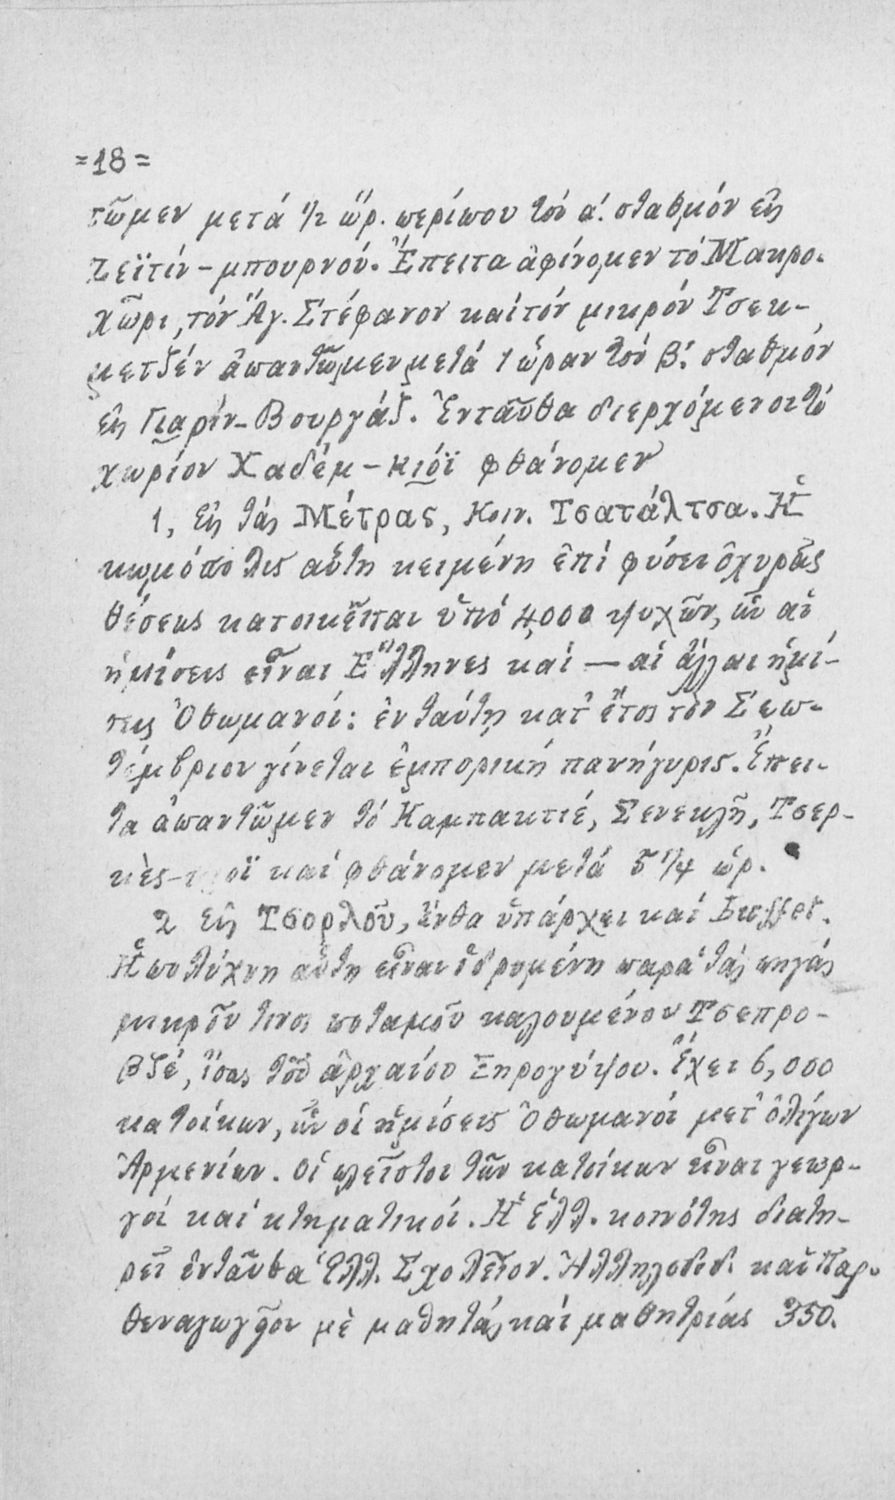 =18=
τῶμεν μετά 1/2 ὥρ. περίπου τόν α΄. σταθμόν εἰς
Ζεϊτίν-μπουρνού. Ἔπειτα ἀφίνομεν τό Μακρο-
χῶρι, τόν Ἅγ. Στέφανον καί τόν μικρόν Τσεκ-
μετζέν ἀπαντῶμεν μετά 1 ὥραν τόν β΄. σταθμόν
εἰς Γιαρίν-Βουργάζ. Ἐνταῦθα διερχόμενοι τό
χωρίον Χαδέμ-κιόϊ φθάνομεν
1, Εἰς τάς Μέτρας, κοιν. Τσατάλτσα. Ἡ
κωμόπολις αὕτη κειμένη ἐπί φύσει ὀχυρᾶς
θέσεως κατοικεῖται ὑπό 4,000 ψυχῶν, ὧν αἱ
ἡμίσεις εἶναι Ἕλληνες καί — αἱ ἄλλαι ἡμί-
σεις Ὀθωμανοί: ἐν ταύτῃ κατ' ἔτος τόν Σεπ-
τέμβριον γίνεται ἐμπορική πανήγυρις. Ἔπει-
τα ἀπαντῶμεν τό Καμπακτιέ, Σενεκλῆ, Τσερ-
κὲς-κιοϊ καί φθάνομεν μετά 5 1/4 ὥρ.
2 Εἰς Τσορλοῦ, ἔνθα ὑπάρχει καί Buffet.
Ἡ πολίχνη αὕτη εἶναι ἱδρυμένη παρά τάς πηγάς
μικροῦ τινος ποταμοῦ καλουμένου Τσεπρο-
βζέ, ἴσως τοῦ ἀρχαίου Ξηρογύψου. Ἔχει 6,000
κατοίκων, ὧν οἱ ἡμίσεις Ὀθωμανοί μετ' ὀλίγων
Ἀρμενίων. Οἱ πλεῖστοι τῶν κατοίκων εἶναι γεωρ-
γοί καί κτηματικοί. Ἡ Ἑλλ. κοινότης διατη-
ρεῖ ἐνταῦθα Ἑλλ. Σχολεῖον. Ἀλληλοδιδ. καί Παρ-
θεναγωγεῖον μὲ μαθητάς καί μαθητρίας 350.